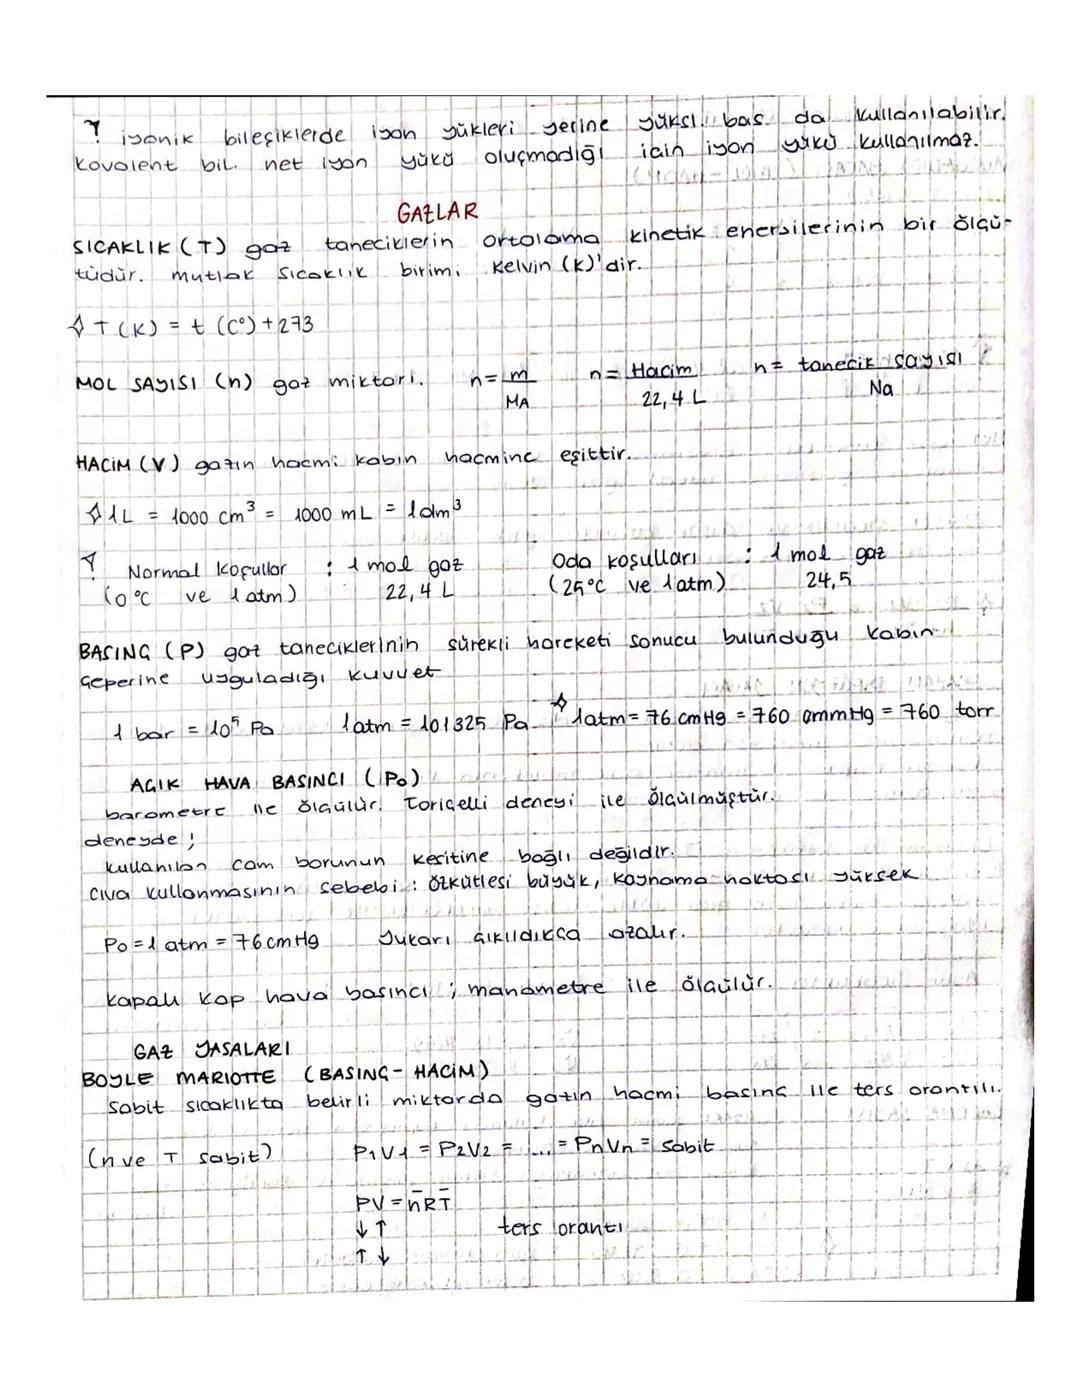 iyonik bileşiklerde iyon yükleri yerine yüksl. bas. da kullanılabilir.
kovalent bil. net iyon yükü oluşmadığı için iyon yükü kullanılmaz.
GAZLAR
SICAKLIK (T) gaz taneciklerin ortalama kinetik enerjilerinin bir ölçü-
tüdür. mutlak sıcaklık birimi Kelvin (K)'dir.
T(K) = t (C°) + 273
MOL SAYISI (n) gaz miktarı. n = m / MA n = Hacim / 22,4 L n = tanecik sayısı / Na
HACİM (V) gazın hacmi kabın hacmine eşittir.
1L = 1000 cm³ = 1000 mL = 1dm³
Normal Koşullar : 1 mol gaz Oda koşulları : 1 mol gaz
(0°C ve 1 atm) 22,4 L (25°C ve 1atm) 24,5
BASINÇ (P) gaz taneciklerinin sürekli hareketi sonucu bulunduğu kabın
çeperine uyguladığı kuvvet
1 bar = 10⁵ Pa 1atm = 101325 Pa 1atm = 76 cmHg = 760 mmHg = 760 torr
AÇIK HAVA BASINCI (Po)
barometre ile ölçülür. Toriçelli deneyi ile ölçülmüştür.
deneyde ;
kullanılan cam borunun kesitine bağlı değildir.
Cıva kullanmasının sebebi : özkütlesi büyük, kaynama noktası yüksek
Po = 1 atm = 76 cmHg Yukarı çıkıldıkça azalır.
Kapalı kap hava basıncı ; manometre ile ölçülür.
GAZ YASALARI
BOYLE MARIOTTE (BASINÇ - HACİM)
Sabit sıcaklıkta belirli miktarda gazın hacmi basınç ile ters orantılı.
(n ve T sabit) P1V1 = P2V2 = ... = PnVn = sabit
PV = nRT
↓ ↑ ters orantı
↑ ↓